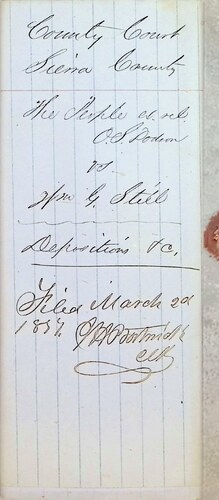 County Court
Sierra County
The People ex. rel.
O. S. Dodson
vs
Wm G. Still
Depositions &c.
Filed March 2d
1857.
Clk